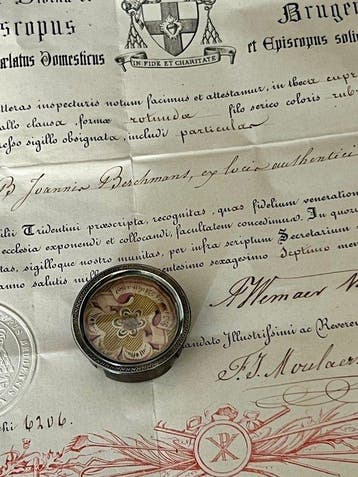 Brugen
iscopus
Prælatus Domesticus
IN FIDE ET CHARITATE
et Episcopus soli
litteras inspecturis notum facimus et attestamur, in theca cupr
tallo clausa, formæ rotunda filo serico coloris rub
osso sigillo obsignata, includi particulas
B Joannis Berchmans, ex locis authentici
ilii Tridentini præscripta, recognitas, quas fidelium veneration
ecclesia exponendi et collocandi, facultatem concedimus. In quor
tas, sigilloque nostro munitas, per infra scriptum Secretarium
anno salutis mill entesimo sexagesimo Septimo me
andato Illustrissimi ac Revere
F. J. Moulaer
6206.